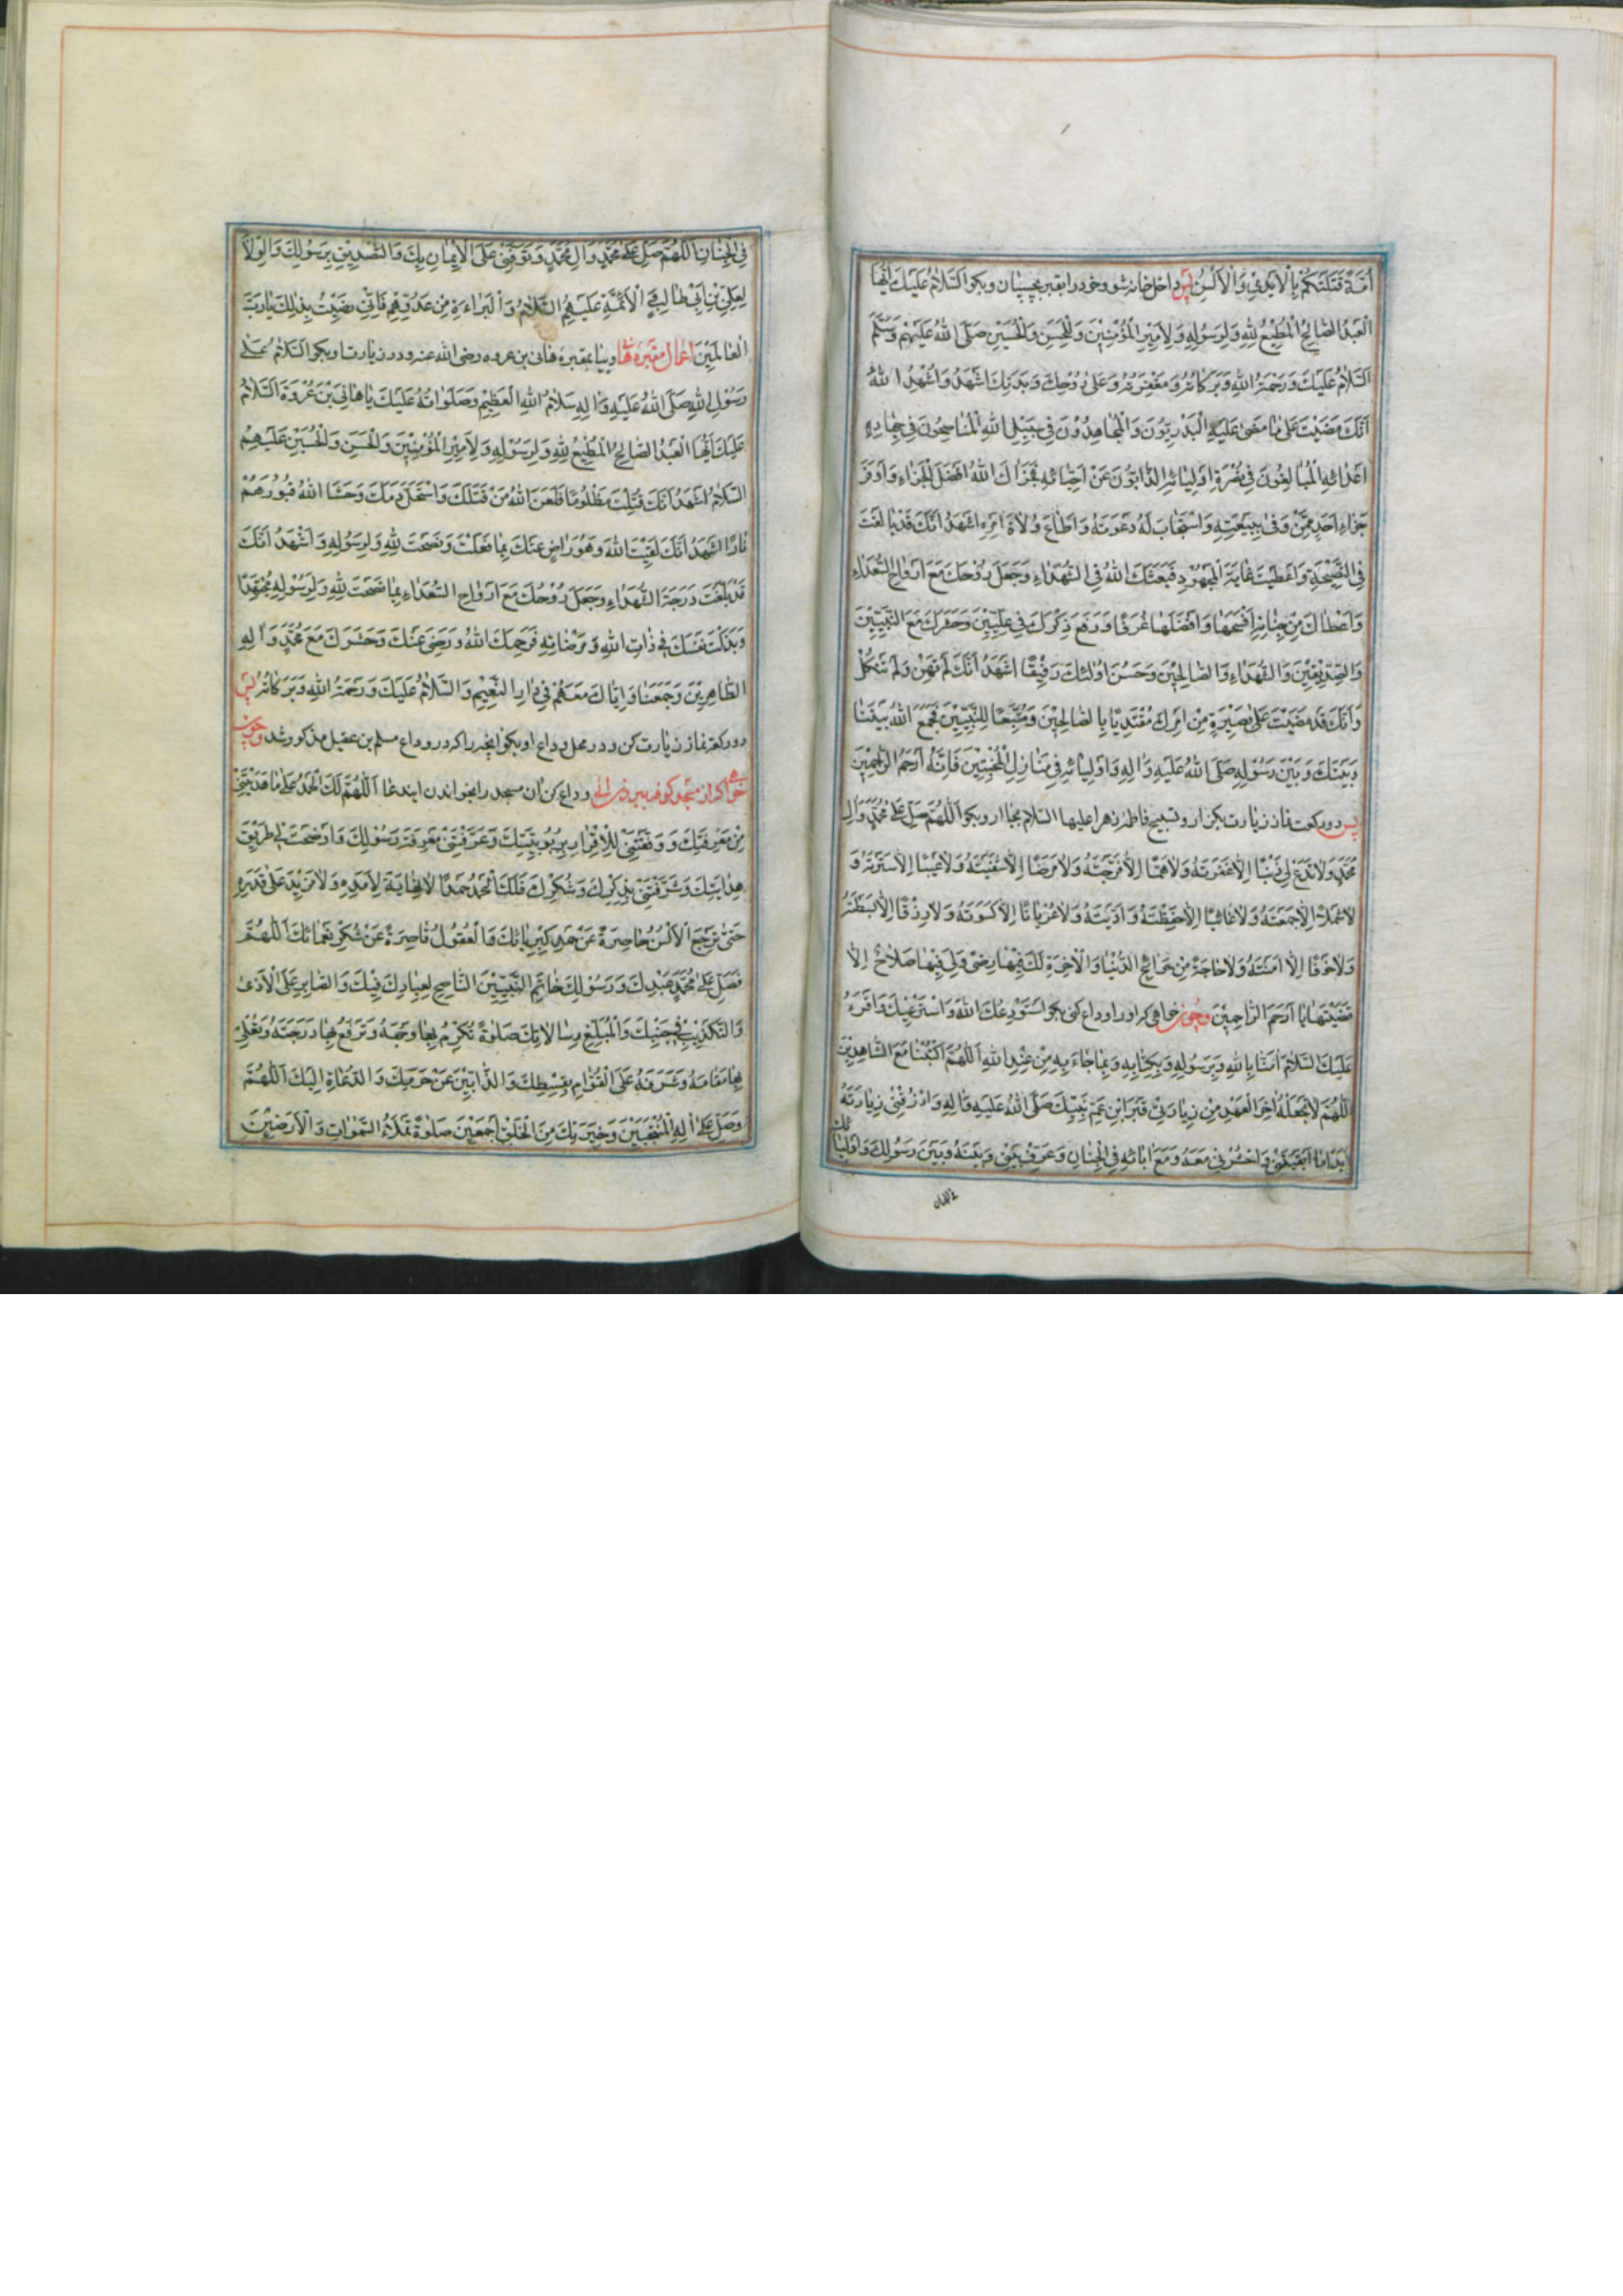 اُمَّةً قَتَلَتْكُمْ بِالْاَيْدِيْ وَالْاَلْسُنِ پس داخل خانه شو و خود را بقبر بچسپان و بكو اَلسَّلَامُ عَلَيْكَ اَيُّهَا
الْعَبْدُ الصَّالِحُ الْمُطِيْعُ لِلّٰهِ وَلِرَسُوْلِهٖ وَلِاَمِيْرِ الْمُؤْمِنِيْنَ وَالْحَسَنِ وَالْحُسَيْنِ صَلَّى اللّٰهُ عَلَيْهِمْ وَسَلَّمَ
اَلسَّلَامُ عَلَيْكَ وَرَحْمَةُ اللّٰهِ وَبَرَكَاتُهُ وَمَغْفِرَتُهُ وَعَلٰى رُوْحِكَ وَبَدَنِكَ اَشْهَدُ وَاُشْهِدُ اللّٰهَ
اَنَّكَ مَضَيْتَ عَلٰى مَا مَضٰى عَلَيْهِ الْبَدْرِيُّوْنَ وَالْمُجَاهِدُوْنَ فِيْ سَبِيْلِ اللّٰهِ الْمُنَاصِحُوْنَ فِيْ جِهَادِ
اَعْدَائِهِ الْمُبَالِغُوْنَ فِيْ نُصْرَةِ اَوْلِيَائِهِ الذَّابُّوْنَ عَنْ اَحِبَّائِهِ فَجَزَاكَ اللّٰهُ اَفْضَلَ الْجَزَاءِ وَاَوْفَرَ
جَزَاءِ اَحَدٍ مِمَّنْ وَفٰى بِبَيْعَتِهِ وَاسْتَجَابَ لَهُ دَعْوَتَهُ وَاَطَاعَ وُلَاةَ اَمْرِهِ اَشْهَدُ اَنَّكَ قَدْ بَالَغْتَ
فِي النَّصِيْحَةِ وَاَعْطَيْتَ غَايَةَ الْمَجْهُوْدِ فَبَعَثَكَ اللّٰهُ فِي الشُّهَدَاءِ وَجَعَلَ رُوْحَكَ مَعَ اَرْوَاحِ السُّعَدَاءِ
وَاَعْطَاكَ مِنْ جِنَانِهِ اَفْسَحَهَا وَاَفْضَلَهَا غُرَفًا وَرَفَعَ ذِكْرَكَ فِيْ عِلِّيِّيْنَ وَحَشَرَكَ مَعَ النَّبِيِّيْنَ
وَالصِّدِّيْقِيْنَ وَالشُّهَدَاءِ وَالصَّالِحِيْنَ وَحَسُنَ اُولٰئِكَ رَفِيْقًا اَشْهَدُ اَنَّكَ لَمْ تَهِنْ وَلَمْ تَنْكُلْ
وَاَنَّكَ قَدْ مَضَيْتَ عَلٰى بَصِيْرَةٍ مِنْ اَمْرِكَ مُقْتَدِيًا بِالصَّالِحِيْنَ وَمُتَّبِعًا لِلنَّبِيِّيْنَ فَجَمَعَ اللّٰهُ بَيْنَنَا
وَبَيْنَكَ وَبَيْنَ رَسُوْلِهِ صَلَّى اللّٰهُ عَلَيْهِ وَاٰلِهِ وَاَوْلِيَائِهِ فِيْ مَنَازِلِ الْمُخْبِتِيْنَ فَاِنَّهُ اَرْحَمُ الرَّاحِمِيْنَ
پس دو ركعت نماز زيارت بكن و تسبيح فاطمه زهرا عليها السلام بجا ار و بكو اَللّٰهُمَّ صَلِّ عَلٰى مُحَمَّدٍ وَاٰلِ
مُحَمَّدٍ وَلَا تَدَعْ لِيْ ذَنْبًا اِلَّا غَفَرْتَهُ وَلَا هَمًّا اِلَّا فَرَّجْتَهُ وَلَا مَرَضًا اِلَّا شَفَيْتَهُ وَلَا عَيْبًا اِلَّا سَتَرْتَهُ وَ
لَا شَمْلًا اِلَّا جَمَعْتَهُ وَلَا غَائِبًا اِلَّا حَفِظْتَهُ وَاَدْنَيْتَهُ وَلَا عُرْيَانًا اِلَّا كَسَوْتَهُ وَلَا رِزْقًا اِلَّا بَسَطْتَهُ
وَلَا خَوْفًا اِلَّا اٰمَنْتَهُ وَلَا حَاجَةً مِنْ حَوَائِجِ الدُّنْيَا وَالْاٰخِرَةِ لَكَ فِيْهَا رِضًى وَلِيْ فِيْهَا صَلَاحٌ اِلَّا
قَضَيْتَهَا يَا اَرْحَمَ الرَّاحِمِيْنَ و چون خواهى كه او را وداع كنى بكو اَسْتَوْدِعُكَ اللّٰهَ وَاَسْتَرْعِيْكَ وَاَقْرَءُ
عَلَيْكَ السَّلَامَ اٰمَنَّا بِاللّٰهِ وَبِرَسُوْلِهِ وَبِكِتَابِهِ وَبِمَا جَاءَ بِهِ مِنْ عِنْدِ اللّٰهِ اَللّٰهُمَّ اكْتُبْنَا مَعَ الشَّاهِدِيْنَ
اَللّٰهُمَّ لَا تَجْعَلْهُ اٰخِرَ الْعَهْدِ مِنْ زِيَارَتِيْ قَبْرَ ابْنِ عَمِّ نَبِيِّكَ صَلَّى اللّٰهُ عَلَيْهِ وَاٰلِهِ وَارْزُقْنِيْ زِيَارَتَهُ
اَبَدًا مَا اَبْقَيْتَنِيْ وَاحْشُرْنِيْ مَعَهُ وَمَعَ اٰبَائِهِ فِي الْجِنَانِ وَعَرِّفْ بَيْنِيْ وَبَيْنَهُ وَبَيْنَ رَسُوْلِكَ وَاَوْلِيَائِكَ
فى الجنان
فِي الْجِنَانِ اَللّٰهُمَّ صَلِّ عَلٰى مُحَمَّدٍ وَاٰلِ مُحَمَّدٍ وَتَوَفَّنِيْ عَلَى الْاِيْمَانِ بِكَ وَالتَّصْدِيْقِ بِرَسُوْلِكَ وَالْوِلَايَةِ
لِعَلِيِّ بْنِ اَبِيْ طَالِبٍ وَالْاَئِمَّةِ عَلَيْهِمُ السَّلَامُ وَالْبَرَاءَةِ مِنْ عَدُوِّهِمْ فَاِنِّيْ رَضِيْتُ بِذٰلِكَ يَا رَبَّ
الْعَالَمِيْنَ اعمال مقبره هانى و بيا بمقبره هانى بن عروه رضى الله عنه و در زيارت او بكو اَلسَّلَامُ عَلٰى
رَسُوْلِ اللّٰهِ صَلَّى اللّٰهُ عَلَيْهِ وَاٰلِهِ سَلَامُ اللّٰهِ الْعَظِيْمِ وَصَلَوَاتُهُ عَلَيْكَ يَا هَانِيَ بْنَ عُرْوَةَ اَلسَّلَامُ
عَلَيْكَ اَيُّهَا الْعَبْدُ الصَّالِحُ الْمُطِيْعُ لِلّٰهِ وَلِرَسُوْلِهِ وَلِاَمِيْرِ الْمُؤْمِنِيْنَ وَالْحَسَنِ وَالْحُسَيْنِ عَلَيْهِمُ
السَّلَامُ اَشْهَدُ اَنَّكَ قُتِلْتَ مَظْلُوْمًا فَلَعَنَ اللّٰهُ مَنْ قَتَلَكَ وَاسْتَحَلَّ دَمَكَ وَحَشَا اللّٰهُ قُبُوْرَهُمْ
نَارًا اَشْهَدُ اَنَّكَ لَقِيْتَ اللّٰهَ وَهُوَ رَاضٍ عَنْكَ بِمَا فَعَلْتَ وَنَصَحْتَ لِلّٰهِ وَلِرَسُوْلِهِ وَاَشْهَدُ اَنَّكَ
قَدْ بَلَغْتَ دَرَجَةَ الشُّهَدَاءِ وَجَعَلَ رُوْحَكَ مَعَ اَرْوَاحِ السُّعَدَاءِ بِمَا نَصَحْتَ لِلّٰهِ وَلِرَسُوْلِهِ مُجْتَهِدًا
وَبَذَلْتَ نَفْسَكَ فِيْ ذَاتِ اللّٰهِ وَمَرْضَاتِهِ فَرَحِمَكَ اللّٰهُ وَرَضِيَ عَنْكَ وَحَشَرَكَ مَعَ مُحَمَّدٍ وَاٰلِهِ
الطَّاهِرِيْنَ وَجَمَعَنَا وَاِيَّاكَ مَعَهُمْ فِيْ دَارِ النَّعِيْمِ وَالسَّلَامُ عَلَيْكَ وَرَحْمَةُ اللّٰهِ وَبَرَكَاتُهُ پس
دو ركعت نماز زيارت كن و در محل وداع او بكو انچه را كه در وداع مسلم بن عقيل مذكور شد و چون
خواهى كه از مسجد كوفه بيرون ائى وداع كن ان مسجد را بخواندن اين دعا اَللّٰهُمَّ لَكَ الْحَمْدُ عَلٰى مَا هَدَيْتَنِيْ
مِنْ مَعْرِفَتِكَ وَوَفَّقْتَنِيْ لِلْاِقْرَارِ بِرُبُوْبِيَّتِكَ وَعَرَّفْتَنِيْ مَعْرِفَةَ رَسُوْلِكَ وَاَوْضَحْتَ لِيْ طَرِيْقَ
هِدَايَتِكَ وَشَرَّفْتَنِيْ بِذِكْرِكَ وَشُكْرِكَ فَلَكَ الْحَمْدُ حَمْدًا لَا نِهَايَةَ لِاَمَدِهِ وَلَا مَزِيْدَ عَلٰى قَدْرِهِ
حَتّٰى تَرْجِعَ الْاَلْسُنُ حَاصِرَةً عَنْ حَمْدِ كِبْرِيَائِكَ وَالْعُقُوْلُ قَاصِرَةً عَنْ شُكْرِ نَعْمَائِكَ اَللّٰهُمَّ
فَصَلِّ عَلٰى مُحَمَّدٍ عَبْدِكَ وَرَسُوْلِكَ خَاتِمِ النَّبِيِّيْنَ النَّاصِحِ لِعِبَادِكَ فِيْكَ وَالصَّابِرِ عَلَى الْاَذٰى
وَالتَّكْذِيْبِ فِيْ جَنْبِكَ وَالْمُبَلِّغِ رِسَالَاتِكَ صَلٰوةً تُكْرِمُ بِهَا وَجْهَهُ وَتَرْفَعُ بِهَا دَرَجَتَهُ وَتُعْلِيْ
بِهَا مَقَامَهُ وَشَرَفَهُ عَلَى الْقُوَّامِ بِقِسْطِكَ وَالذَّابِّيْنَ عَنْ حَرَمِكَ وَالدُّعَاةِ اِلَيْكَ اَللّٰهُمَّ
وَصَلِّ عَلٰى اٰلِهِ الْمُنْتَجَبِيْنَ وَخِيَرَتِكَ مِنَ الْخَلْقِ اَجْمَعِيْنَ صَلٰوةً تَمْلَاُ السَّمٰوَاتِ وَالْاَرَضِيْنَ